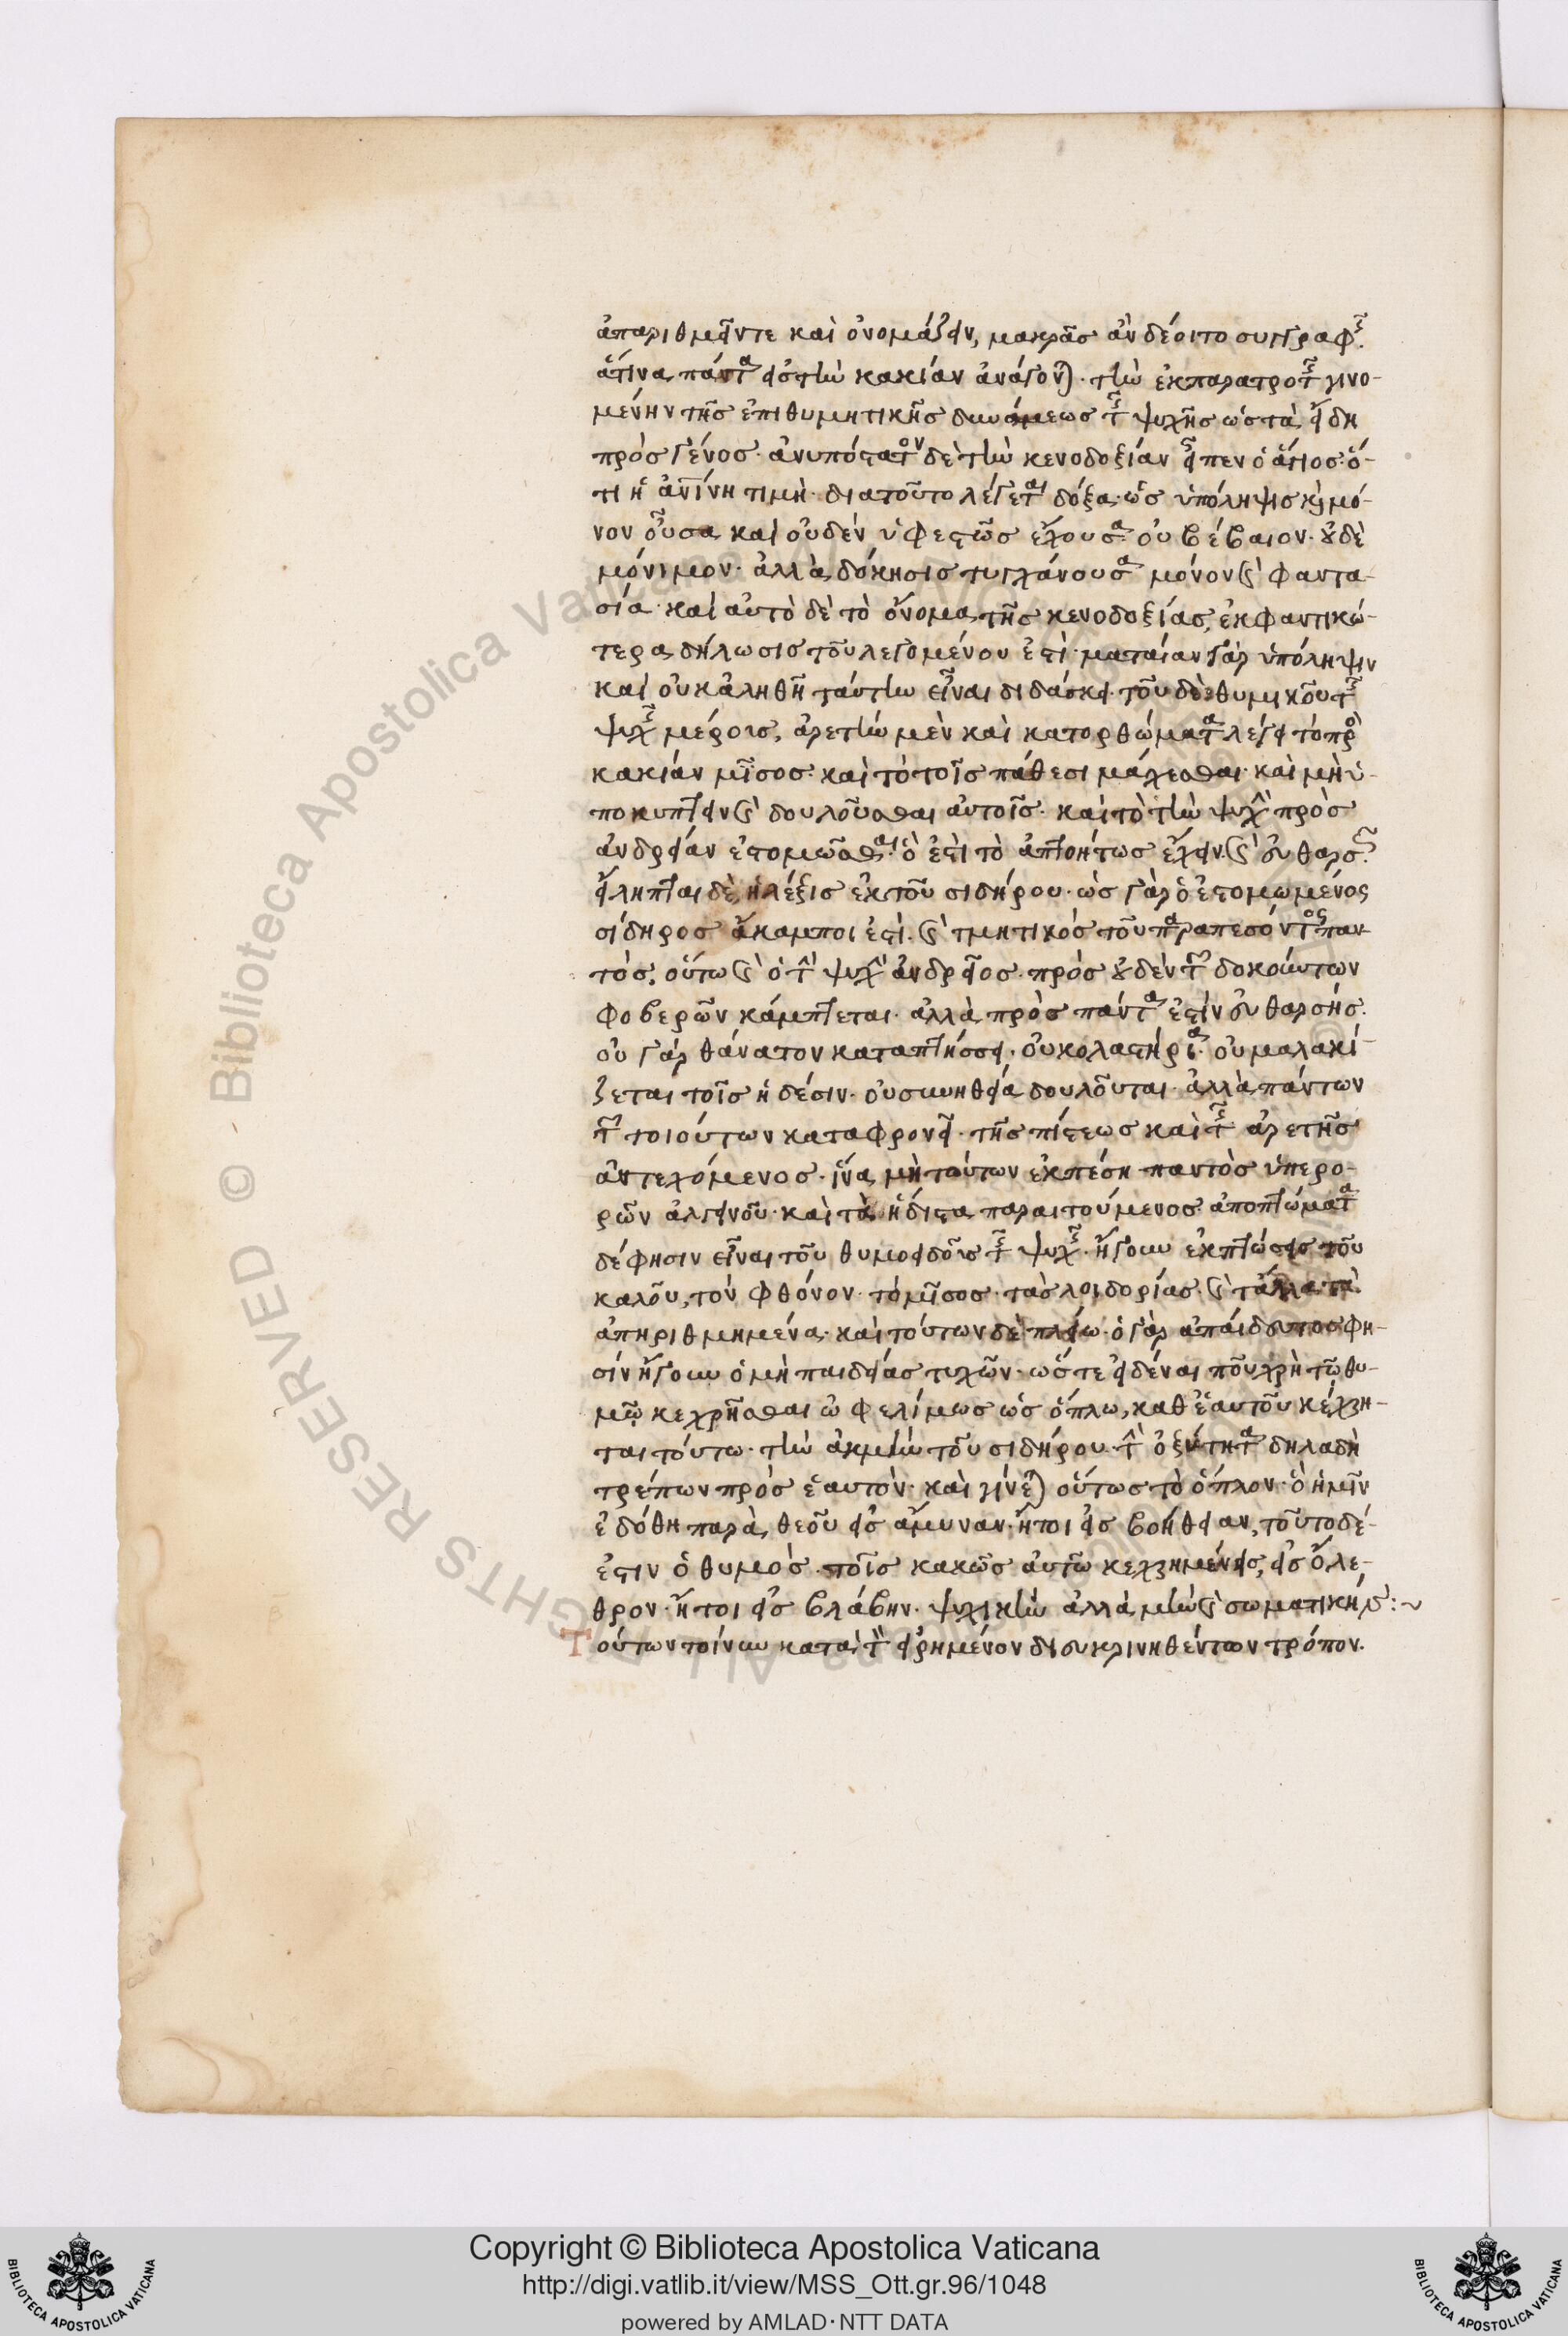 ἀπαριθμεῖν τε καὶ ὀνομάζειν, μακρᾶς ἂν δέοιτο συγγραφῆς.
ἅτινα πάντα εἰς τὴν κακίαν ἀνάγονται· τὴν ἐκ παρατροπῆς γινο-
μένην τῆς ἐπιθυμητικῆς δυνάμεως τῆς ψυχῆς ὡς τὰ εἴδη
πρὸς γένος· ἀνυπόστατον δὲ τὴν κενοδοξίαν εἶπεν ὁ ἅγιος· ὅ-
τι ἡ ἀνίνη τιμὴ· διατοῦτο λέγεται δόξα· ὡς ὑπόληψις καὶ μό-
νον οὖσα καὶ οὐδὲν ὑφεστῶς ἔχουσα· οὐ βέβαιον· οὐδὲ
μόνιμον· ἀλλὰ δόκησις τυγχάνουσα μόνον καὶ φαντα-
σία· καὶ αὐτὸ δὲ τὸ ὄνομα τῆς κενοδοξίας, ἐκφαντικώ-
τερα δήλωσις τοῦ λεγομένου ἐστὶ· ματαίαν γὰρ ὑπόληψιν
καὶ οὐκ ἀληθῆ ταύτην εἶναι διδάσκει· τοῦ δὲ θυμικοῦ τῆς
ψυχῆς μέρους, ἀρετὴν μὲν καὶ κατορθώματα λέγει τὸ πρὸς
κακίαν μῖσος· καὶ τὸ τοῖς πάθεσι μάχεσθαι· καὶ μὴ ὑ-
ποκύπτειν καὶ δουλοῦσθαι αὐτοῖς· καὶ τὸ τὴν ψυχὴν πρὸς
ἀνδρείαν ἐστομῶσθαι· ὅ ἐστὶ τὸ ἀπτοήτως ἔχειν· καὶ εὐθαρσῶς·
εἴληπται δὲ ἡ λέξις ἐκ τοῦ σιδήρου· ὡς γὰρ ὁ ἐστομωμένος
σίδηρος ἄκαμποι ἐστί· καὶ τμητικὸς τοῦ παραπεσόντος παν-
τός, οὕτω καὶ ὁ τὴν ψυχὴν ἀνδρεῖος· πρὸς οὐδὲν τῶν δοκούντων
φοβερῶν κάμπτεται· ἀλλὰ πρὸς πάντα ἐστὶν εὐθαρσής·
οὐ γὰρ θάνατον καταπτήσσει· οὐ κολαστήρια· οὐ μαλακί-
ζεται τοῖς ἡδέσιν· οὐ συνηθείᾳ δουλοῦται· ἀλλὰ πάντων
τῶν τοιούτων καταφρονεῖ· τῆς πίστεως καὶ τῆς ἀρετῆς
ἀντεχόμενος· ἵνα μὴ τούτων ἐκπέσῃ παντὸς ὑπερο-
ρῶν ἀλγεινοῦ· καὶ τὰ ἥδιστα παραιτούμενος· ἀποπτώματα
δέ φησιν εἶναι τοῦ θυμοειδοῦς τῆς ψυχῆς· ἤγουν ἐκπτώσεις τοῦ
καλοῦ, τὸν φθόνον· τὸ μῖσος· τὰς λοιδορίας· καὶ τἄλλα τὰ
ἀπηριθμημένα· καὶ τούτων δὲ πλείω· ὁ γὰρ ἀπαίδευτος φη-
σὶν ἤγουν ὁ μὴ παιδείας τυχῶν· ὥστε εἰδέναι ποῦ χρὴ τῷ θυ-
μῷ κεχρῆσθαι ὠφελίμως ὡς ὅπλω, καθ ἑαυτοῦ κέχρη-
ται τούτω· τὴν ἀκμὴν τοῦ σιδήρου· τὴν ὀξύτητα δηλαδὴ
τρέπων πρὸς ἑαυτὸν· καὶ γίνεται οὕτως τὸ ὅπλον· ὃ ἡμῖν
ἐδόθη παρὰ θεοῦ εἰς ἄμυναν· ἤτοι εἰς βοήθειαν, τοῦτο δέ
ἐστιν ὁ θυμὸς· τοῖς κακῶς αὐτῶ κεχρημένοις, εἰς ὄλε-
θρον· ἤτοι εἰς βλάβην· ψυχικὴν ἀλλὰ μὴν καὶ σωματικήν:~
Τούτων τοίνυν κατὰ τὸν εἰρημένον διευκρινηθέντων τρόπον·
Copyright © Biblioteca Apostolica Vaticana
http://digi.vatlib.it/view/MSS_Ott.gr.96/1048
powered by AMLAD·NTT DATA
BIBLIOTECA APOSTOLICA VATICANA
BIBLIOTECA APOSTOLICA VATICANA